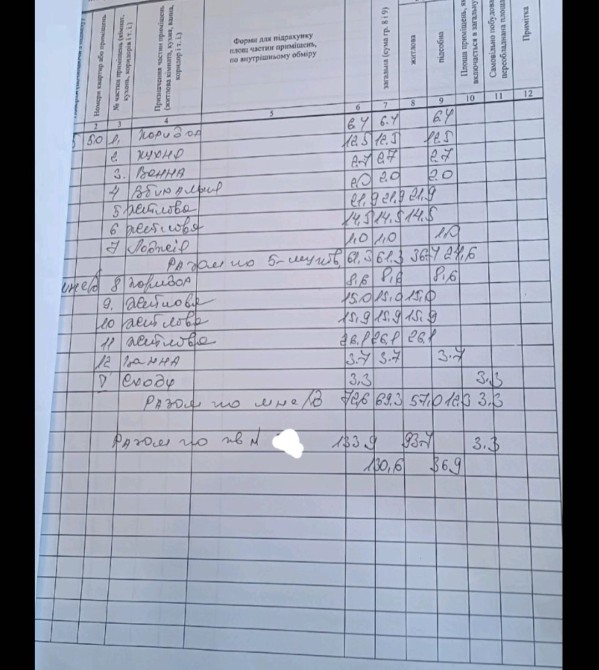 Номери квартир або приміщень
№ частин приміщень (кімнат, кухонь, коридорів і т. і.)
Призначення частин приміщень (житлова кімната, кухня, ванна, коридор і т. і.)
Форми для підрахунку площі частин приміщень, по внутрішньому обміру
загальна (сума гр. 8 і 9)
житлова
підсобна
Площа приміщень,
включається в загальну
Самовільно побудова
переобладнана площ
Примітка
2 3 4 5 6 7 8 9 10 11 12
50 1. коридор 6.4 6.4 6.4
2 кухня 12.5 12.5 12.5
3. Ванна 2.7 2.7 2.7
4 2.0 2.0 2.0
5 житлова 21,9 21,9 21,9
6 житлова 14,5 14,5 14,5
7 Лоджія 1,0 1,0 1,0
Разом по 61.3 61.3 36.4 24,6
8 коридор 8,6 8,6 8,6
9. житлова 15.0 15.0 15.0
10 житлова 15,9 15,9 15,9
11 житлова 26,1 26,1 26,1
12 Ванна 3.7 3.7 3.7
Сходи 3.3 3.3
Разом по 72,6 69.3 57,0 12.3 3.3
Разом по кв N 133.9 93.7 3.3
130,6 36.9